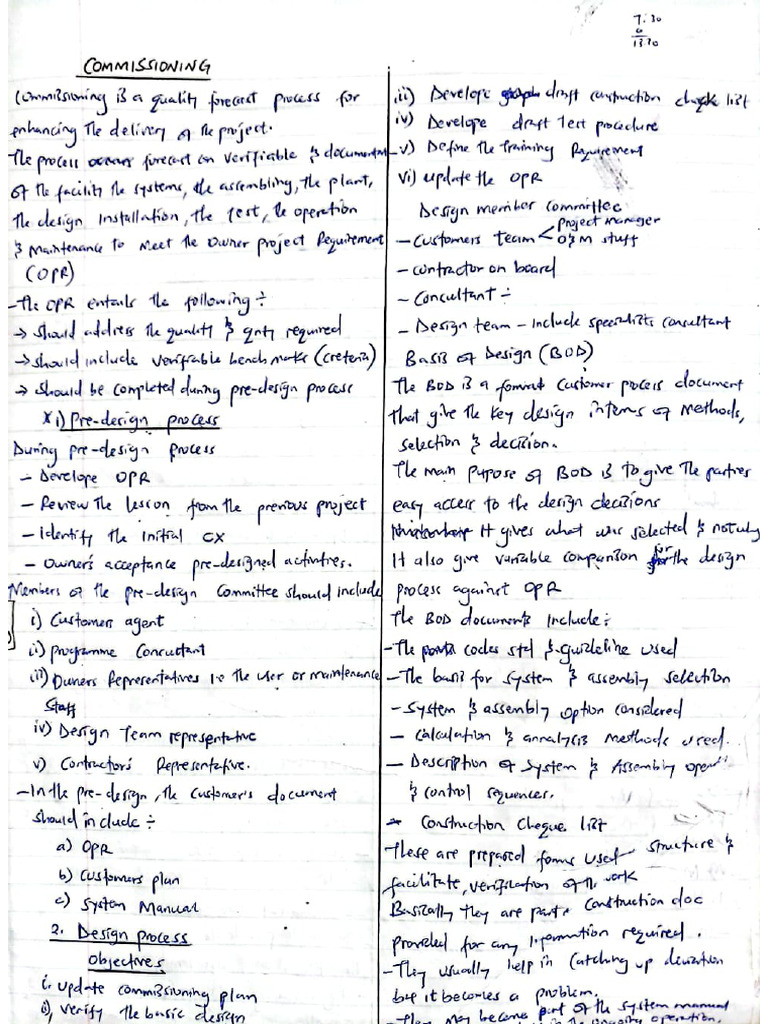 7:30
6
13.30
COMMISSIONING
Commissioning is a quality forecast process for
enhancing the delivery of the project.
The process forecast on verifiable & document
of the facility the systems, the assembling, the plant,
the design installation, the test, the operation
& Maintenance to meet the owner project Requirement
(OPR)
- The OPR entails the following ÷
→ should address the quality & qnty required
→ should include verifiable bench marks (creteria)
→ should be completed during pre-design process
* i) Pre-design process
During pre-design process
- Develope OPR
- Review the lesson from the previous project
- Identify the initial CX
- Owner's acceptance pre-designed activities.
Members of the pre-design Committee should include
i) Customers agent
ii) programme Concultant
iii) Owners Representatives i.e the user or maintenance
Staff
iv) Design Team representative
v) Contractors Representative.
- In the pre-design, the customer's document
should include ÷
a) OPR
b) Customers plan
c) System Manual
2. Design process
Objectives
i. update commissioning plan
ii) verify the basic design
iii) Develope draft construction check list
iv) Develope draft Test procedure
v) Define the Training Requirement
vi) update the OPR
Design member committee
- Customers team < Project manager
O&M stuff
- contractor on board
- Concultant ÷
- Design team - Include specialists consultant
Basis of Design (BOD)
The BOD is a format Customer process document
that give the key design interms of methods,
selection & decision.
The main purpose of BOD is to give the parties
easy access to the design decisions
It gives what was selected & not why
It also give variable comparison for the design
process against OPR
The BOD documents include :
- The codes std & guideline used
- The basis for system & assembly selection
- System & assembly option considered
- Calculation & annalysis methods used.
- Description of System & Assembly
& control sequences.
* Construction Cheque list
These are prepared forms used structure &
facilitate, verification of the work
Basically they are part construction doc
provided for any information required.
- They usually help in catching up deviation
 it becomes a problem.
- They may become part of the system manual
operation.